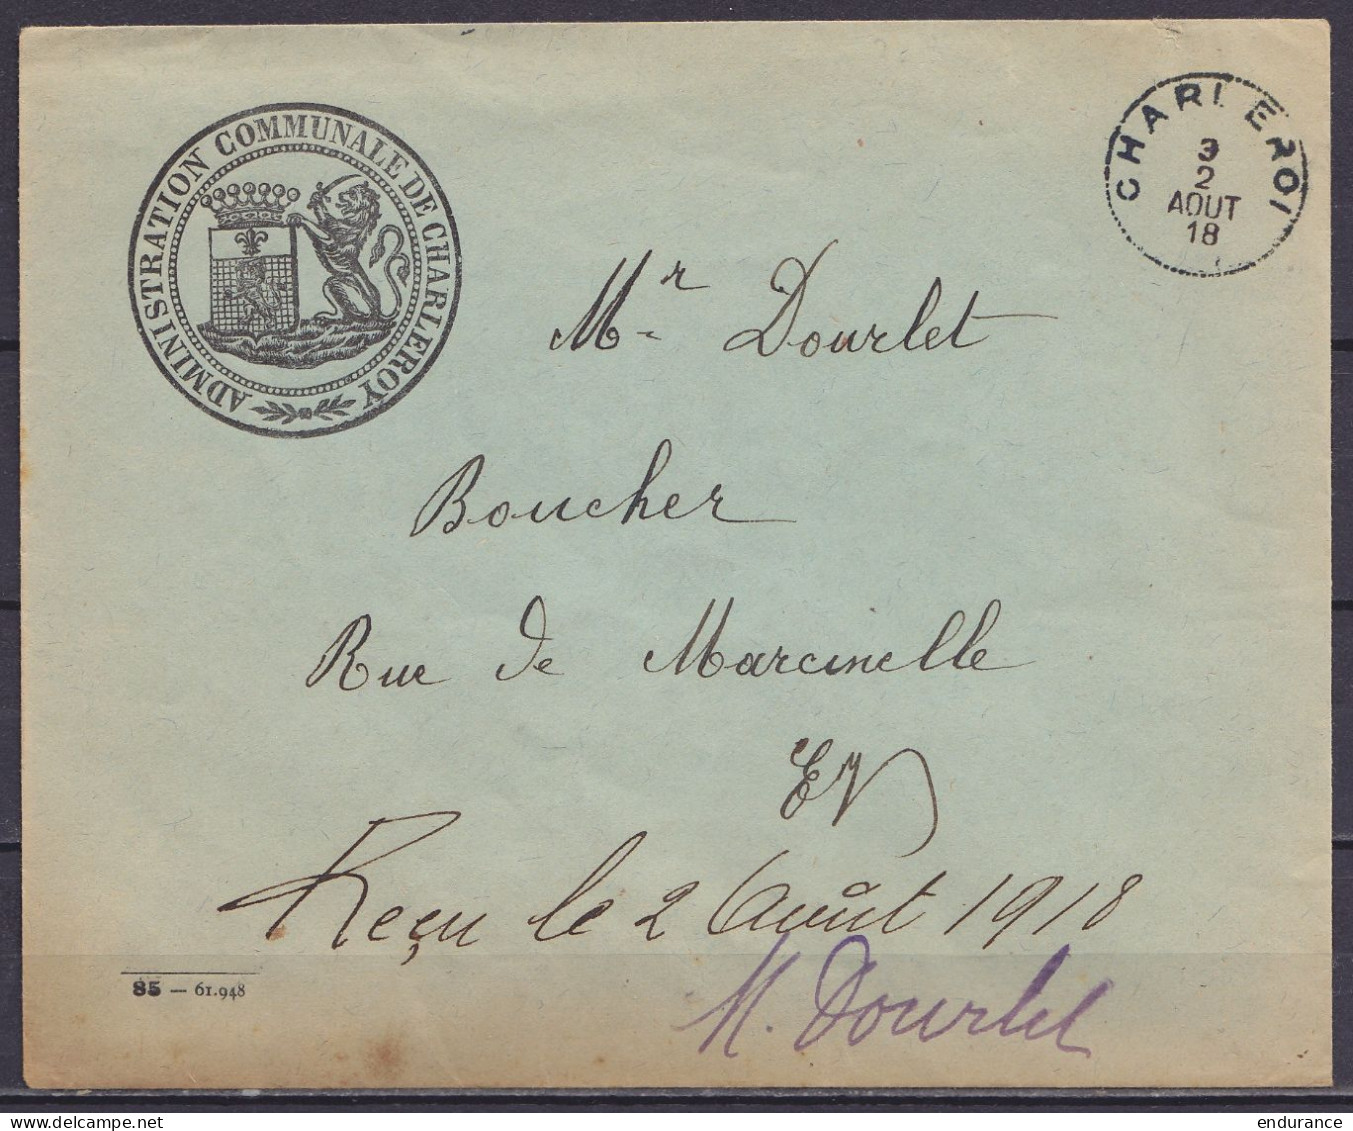 ADMINISTRATION COMMUNALE DE CHARLEROY
CHARLEROI
9
2
AOUT
18
Mr Dourlet
Boucher
Rue de Marcinelle
EV
Reçu le 2 Août 1918
M. Dourlet
85 — 61.948
delcampe.net
endurance